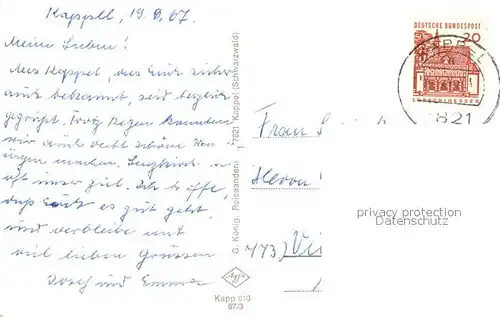 Kappel, 19.8.67.
Meine Lieben!
Aus Kappel, das Euch sicher
auch bekannt, seid herzlich
gegrüßt. Trotz Regen konnten
wir auch recht schöne
machen. Lenzkirch
oft unser Ziel. Ich hoffe,
daß Euch es gut geht,
und verbleibe mit
viel lieben Grüssen
Josef und Emma
G. König, Reiseandenken 7821 Kappel (Schwarzwald)
Kapp 010
67/3
DEUTSCHE BUNDESPOST
20
LORSCH/HESSEN
KAPPEL
7821
Herrn
773)
privacy protection
Datenschutz